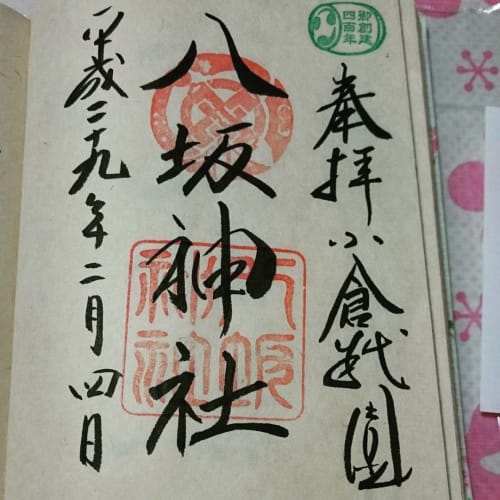 御創建
四百年
奉拝 小倉祇園
八坂神社
八坂
神社
平成二十九年二月四日